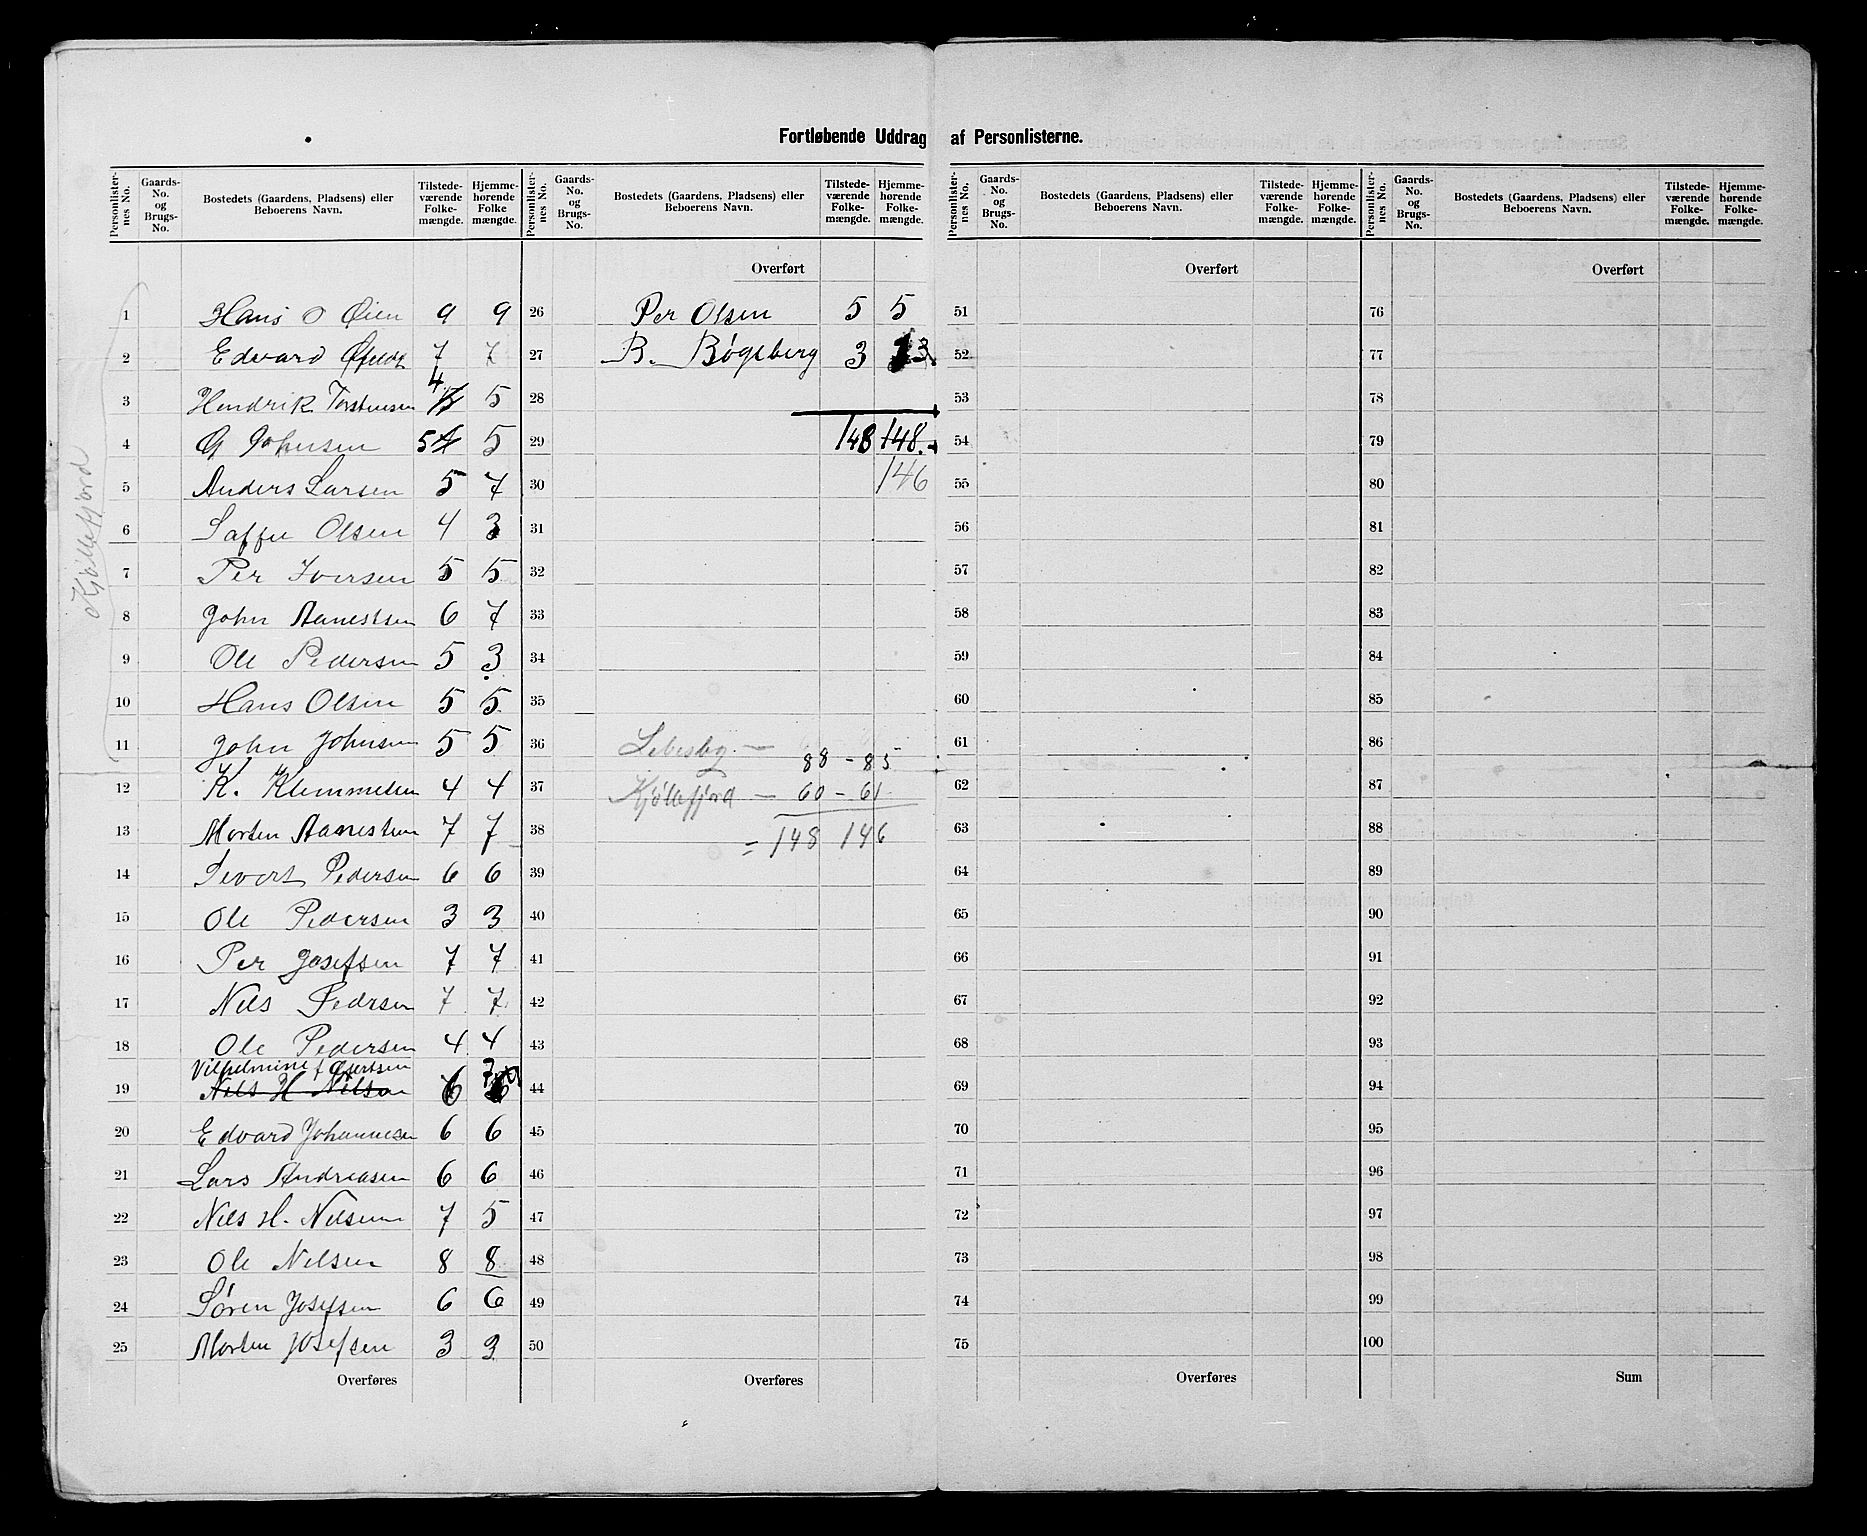 Fortløbende Uddrag af Personlisterne.
Personlister-nes No. Gaards-No. og Brugs-No. Bostedets (Gaardens, Pladsens) eller Beboerens Navn. Tilstede-værende Folke-mængde. Hjemme-hørende Folke-mængde.
Kjøllefjord
1 Hans O Øien 9 9
2 Edvard 7 7
3 Hendrik Torstensen 4 5
4 G Johnsen 5 5
5 Anders Larsen 5 7
6 Olsen 4 3
7 Per Iversen 5 5
8 John Aanestsen 6 7
9 Ole Pedersen 5 3
10 Hans Olsen 5 5
11 John Johnsen 5 5
12 K. Klemmetsen 4 4
13 Morten Aanestsen 7 7
14 Severt Pedersen 6 6
15 Ole Pedersen 3 3
16 Per Josefsen 7 7
17 Nils Pedersen 7 7
18 Ole Pedersen 4 4
Vilhelmine
19 Nils H Nilsen 6
20 Edvard Johannesen 6 6
21 Lars Andreasen 6 6
22 Nils H. Nilsen 7 5
23 Ole Nilsen 8 8
24 Søren Josefsen 6 6
25 Morten Josefsen 3 3
Overføres
Personlister-nes No. Gaards-No. og Brugs-No. Bostedets (Gaardens, Pladsens) eller Beboerens Navn. Tilstede-værende Folke-mængde. Hjemme-hørende Folke-mængde.
Overført
26 Per Olsen 5 5
27 B. Bøgeberg 3 3
28
29 148 148.
30 146
31
32
33
34
35
36 Lebesby — 88 - 85
37 Kjøllefjord — 60 - 61
38 = 148 146
39
40
41
42
43
44
45
46
47
48
49
50
Overføres
Personlister-nes No. Gaards-No. og Brugs-No. Bostedets (Gaardens, Pladsens) eller Beboerens Navn. Tilstede-værende Folke-mængde. Hjemme-hørende Folke-mængde.
Overført
51
52
53
54
55
56
57
58
59
60
61
62
63
64
65
66
67
68
69
70
71
72
73
74
75
Overføres
Personlister-nes No. Gaards-No. og Brugs-No. Bostedets (Gaardens, Pladsens) eller Beboerens Navn. Tilstede-værende Folke-mængde. Hjemme-hørende Folke-mængde.
Overført
76
77
78
79
80
81
82
83
84
85
86
87
88
89
90
91
92
93
94
95
96
97
98
99
100
Sum